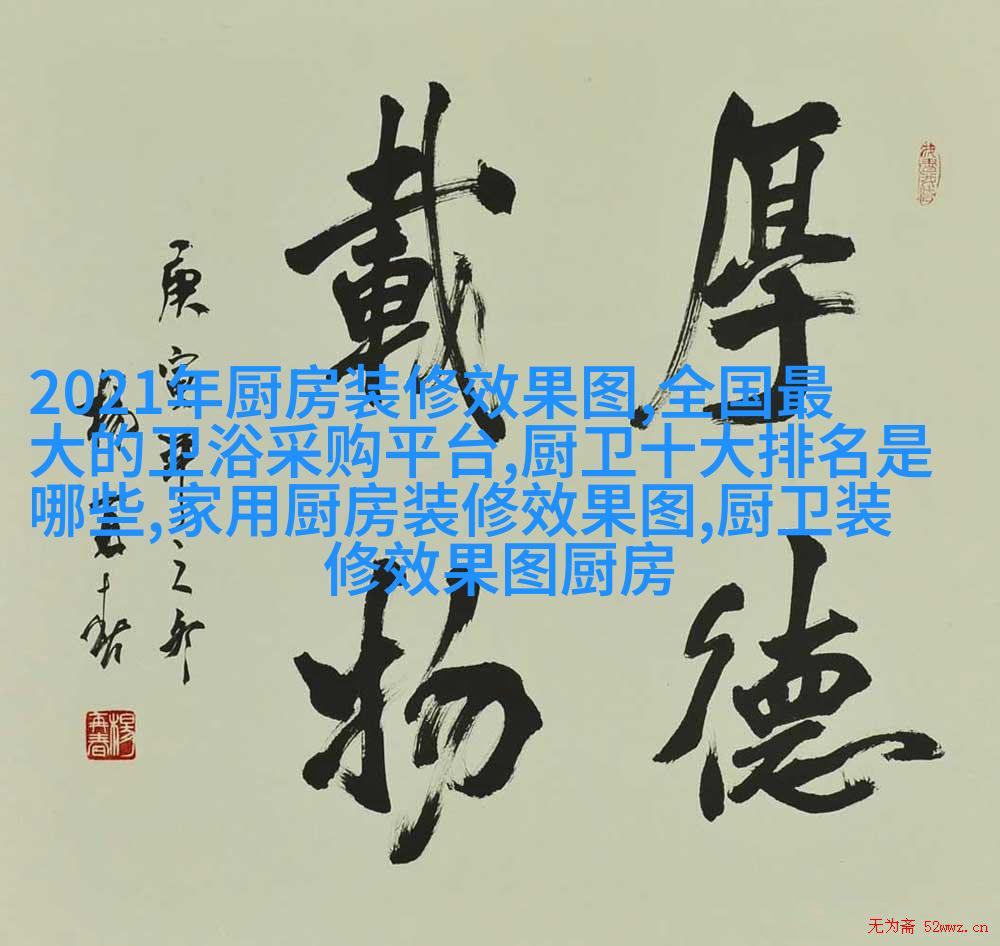 厚德
載物
庚寅年之卯
楊再春
2021年厨房装修效果图,全国最
大的卫浴采购平台,厨卫十大排名是
哪些,家用厨房装修效果图,厨卫装
修效果图厨房
楊再春
无为斋 52wwz.cn